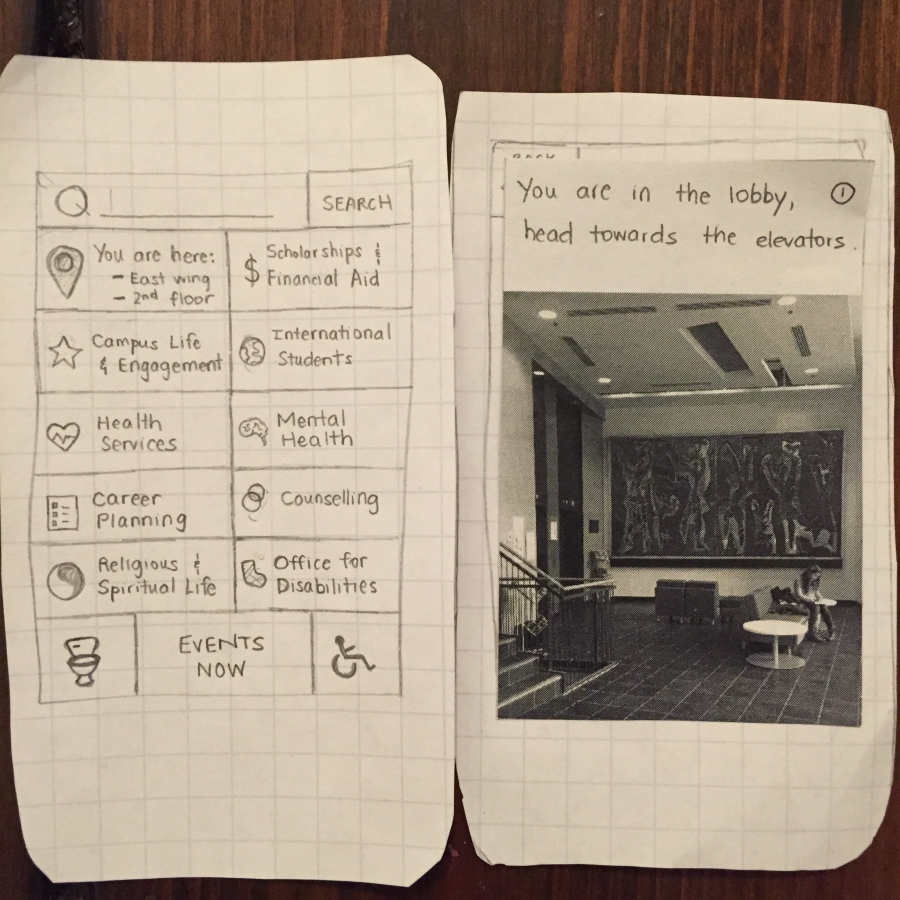 SEARCH
You are here:
- East wing
- 2nd floor
$ Scholarships &
Financial Aid
Campus Life
& Engagement
International
Students
Health
Services
Mental
Health
Career
Planning
Counselling
Religious &
Spiritual Life
Office for
Disabilities
EVENTS
NOW
BACK
You are in the lobby, 1
head towards the elevators.